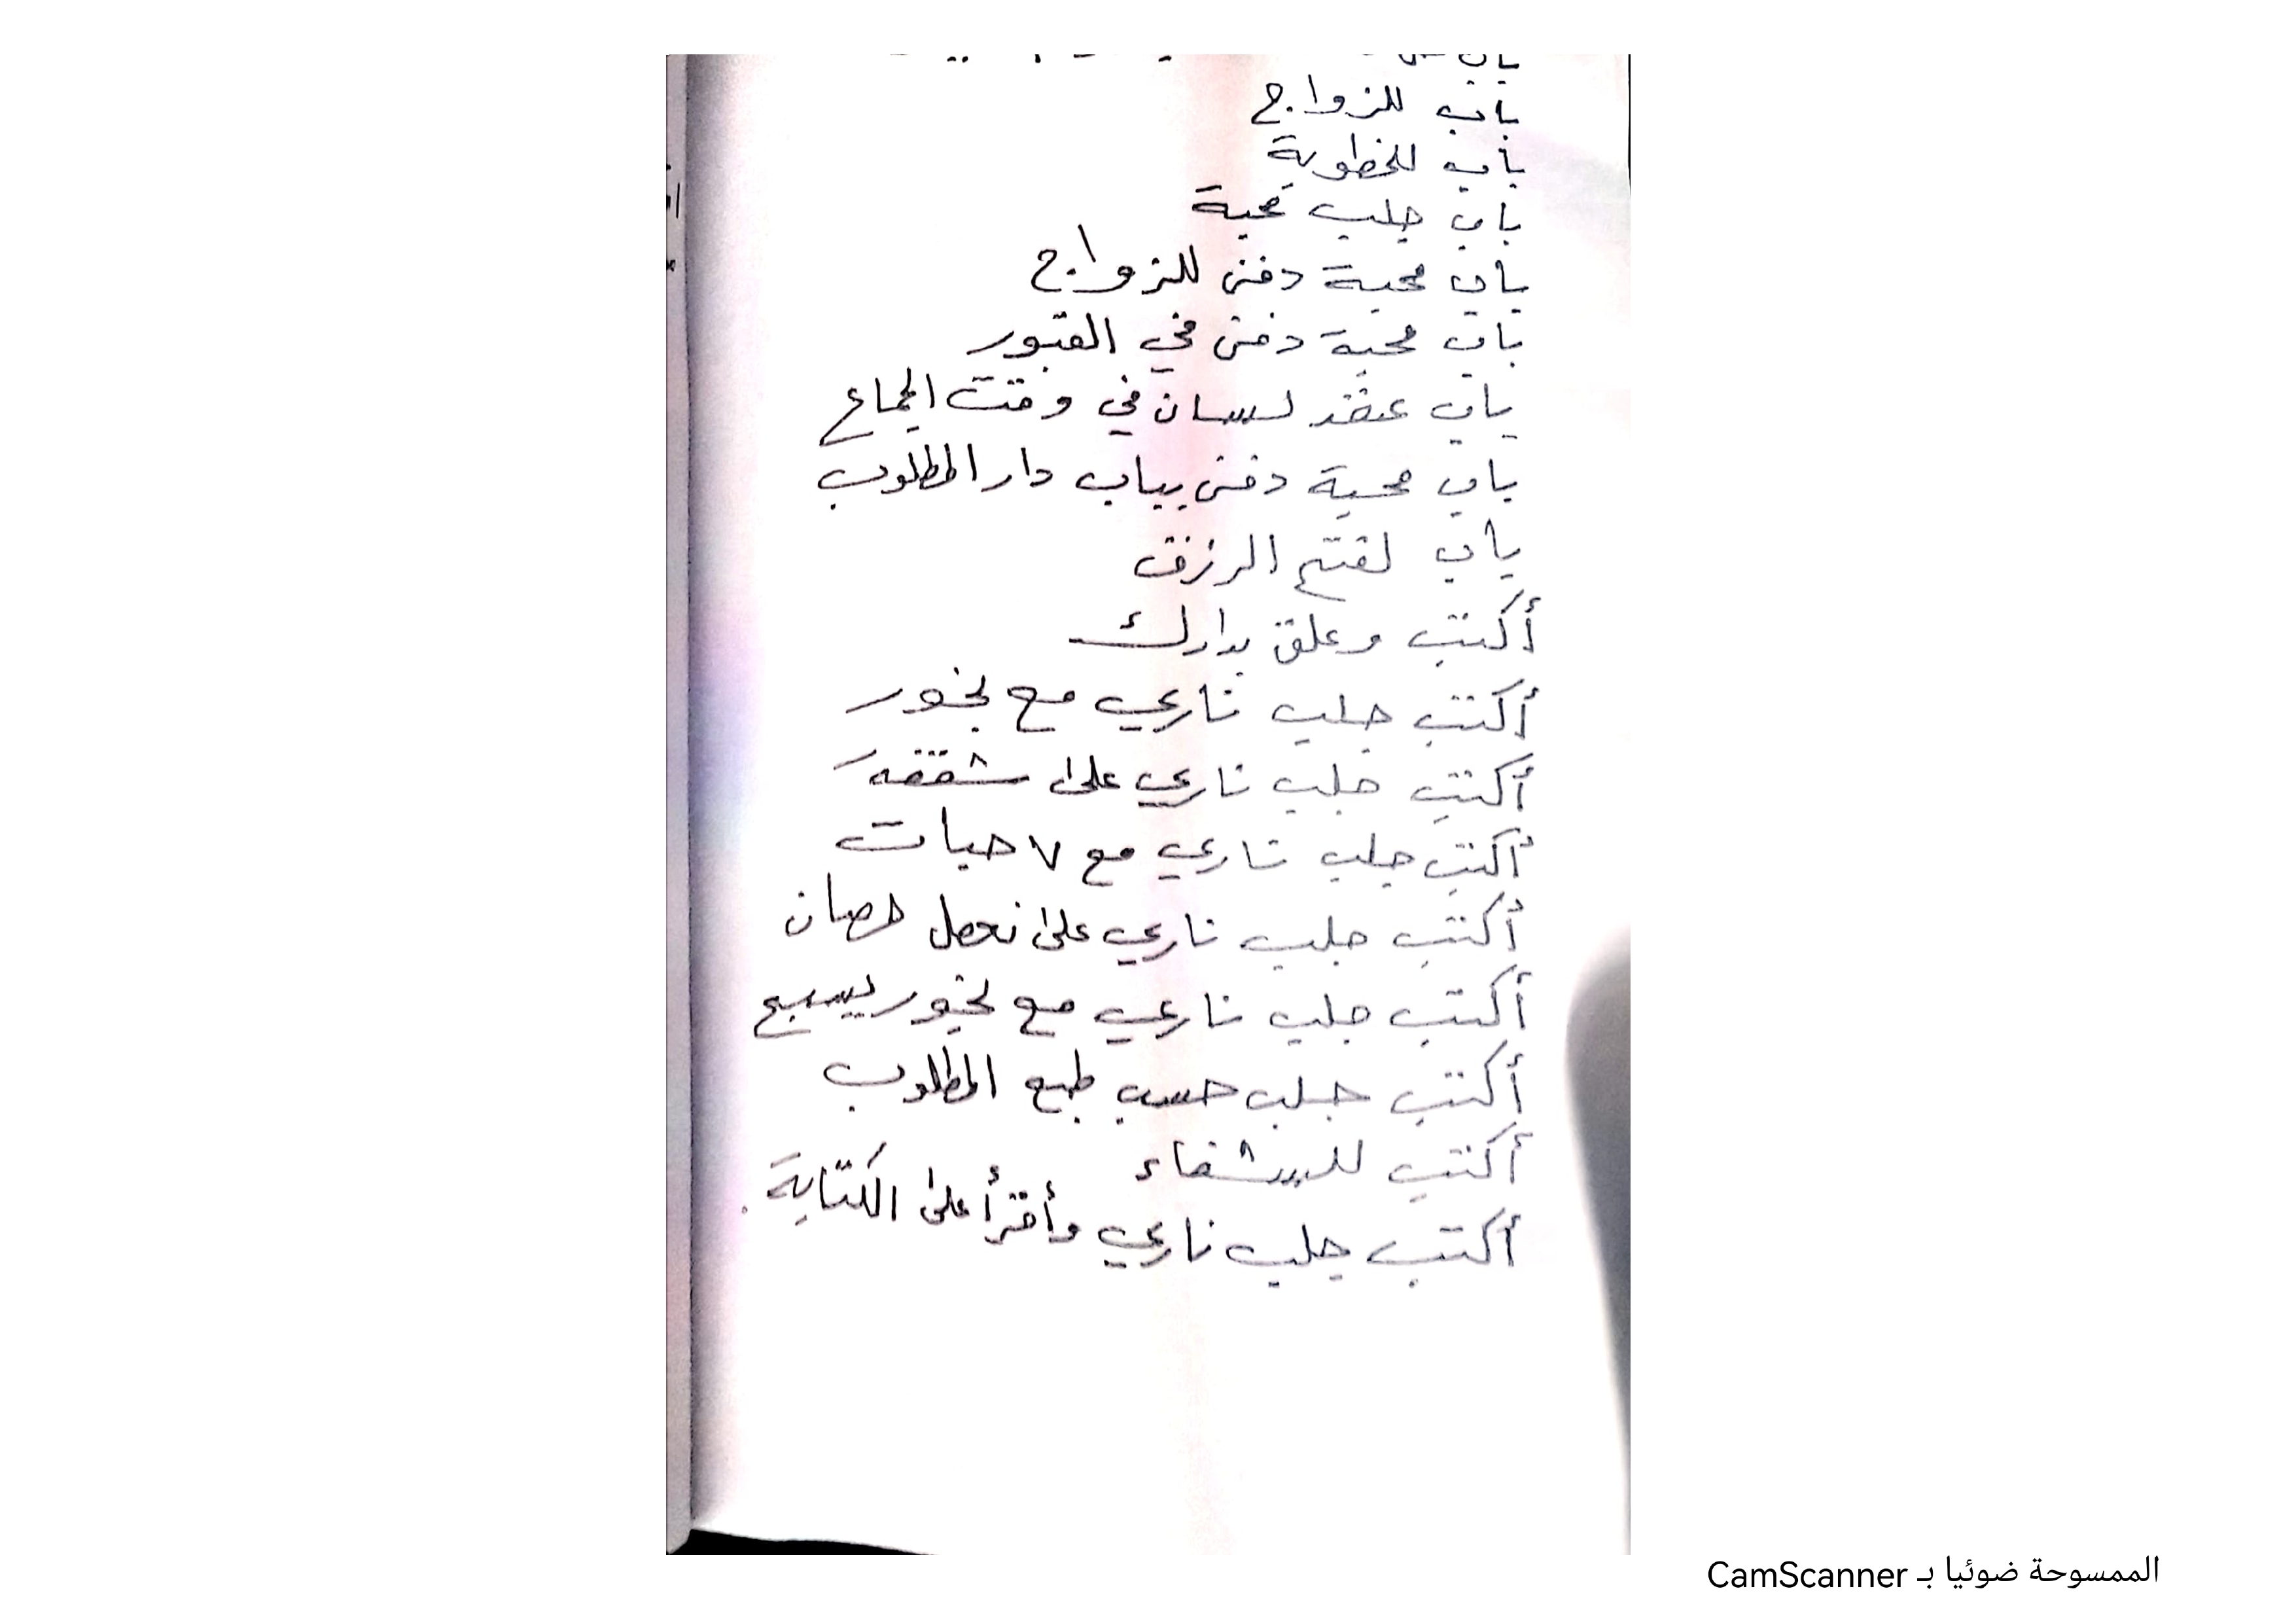 باب
باب للزواج
باب للخطوبة
باب جلب محبة
باب محبة دفن للزواج
باب محبة دفن في القبور
باب عقد لسان في وقت الجماع
باب محبة دفن بباب دار المطلوب
باب لفتح الرزق
أكتب وعلق بدارك
أكتب جلب ناري مع بخور
أكتب جلب ناري على شقفة
أكتب جلب ناري مع ٧ حبات
أكتب جلب ناري على نعل حصان
أكتب جلب ناري مع بخور يسبع
أكتب جلب حسب طبع المطلوب
أكتب للشفاء
أكتب جلب ناري وأقرأ على الكتابة.
الممسوحة ضوئيا بـ CamScanner